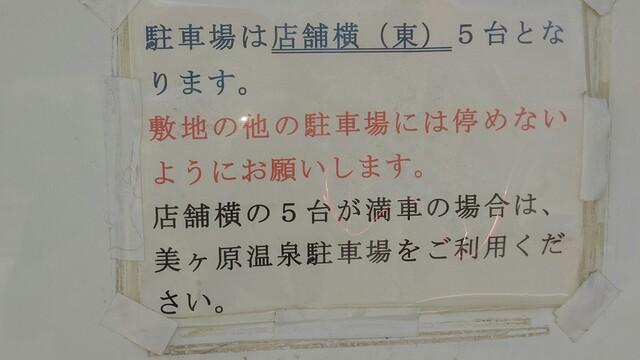 駐車場は店舗横（東）５台とな
ります。
敷地の他の駐車場には停めない
ようにお願いします。
店舗横の５台が満車の場合は、
美ヶ原温泉駐車場をご利用くだ
さい。